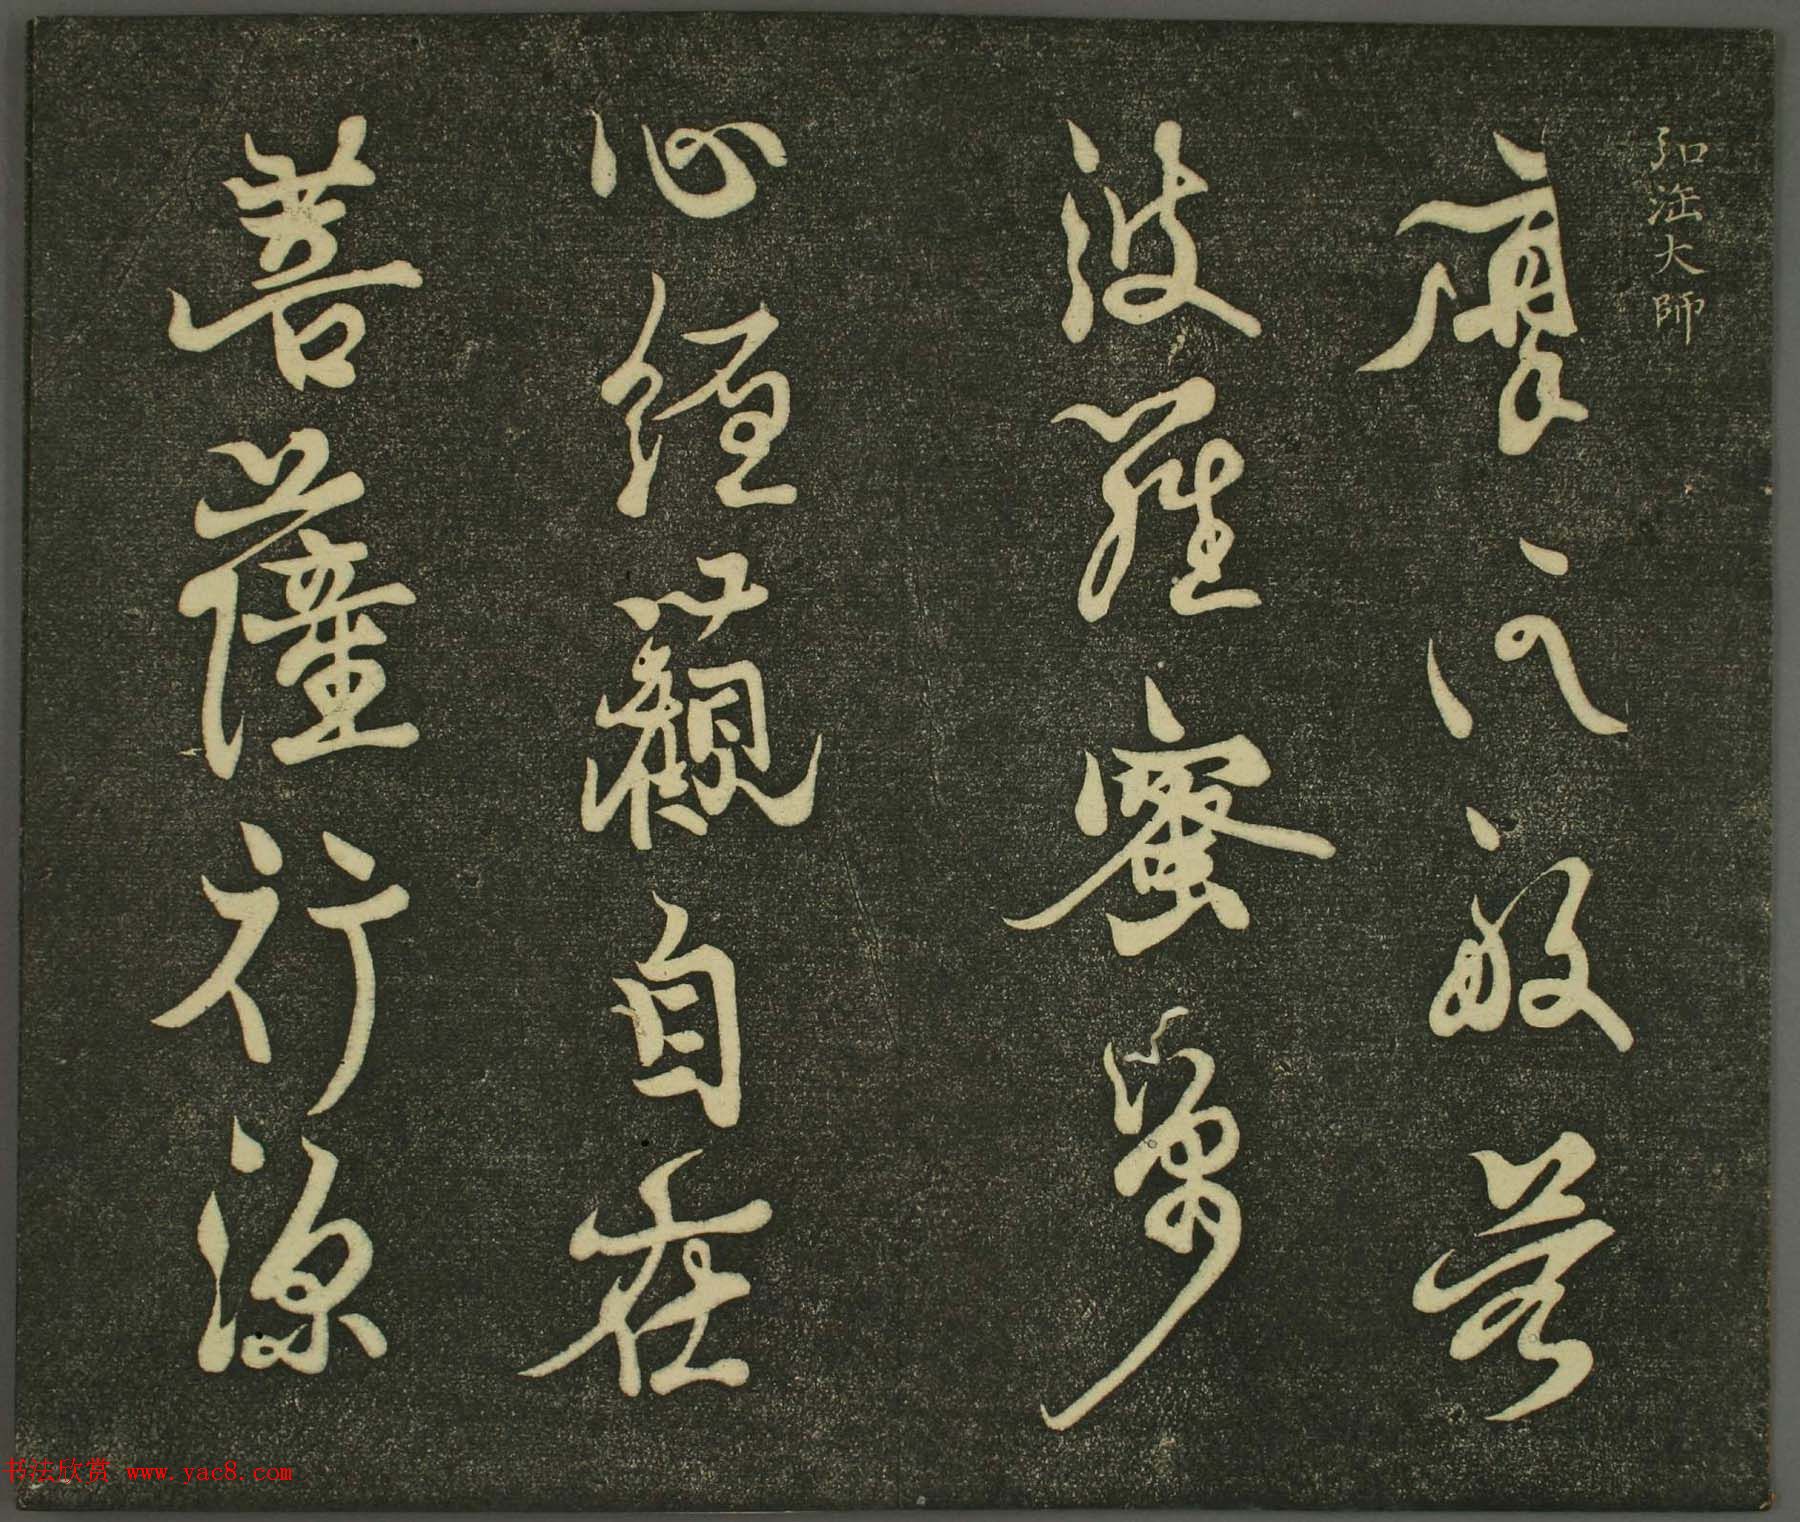 弘法大師
摩訶般若
波羅蜜多
心經觀自在
菩薩行深
书法欣赏 www.yac8.com